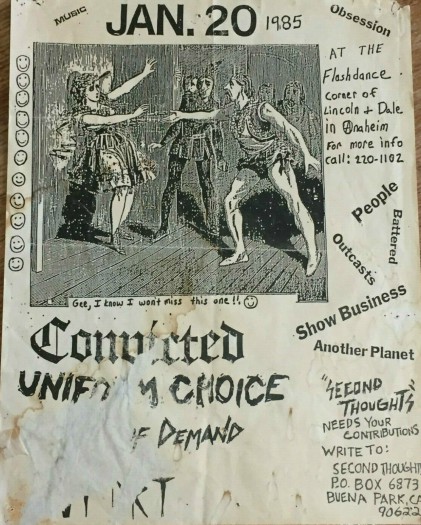 MUSIC
JAN. 20 1985
Obsession
AT THE
Flashdance
corner of
Lincoln + Dale
in Anaheim
For more info
call: 220-1102
People
Battered
Outcasts
Show Business
Another Planet
Gee, I know I won't miss this one!!
Convicted
UNIFORM CHOICE
OF DEMAND
"SECOND
THOUGHTS"
NEEDS YOUR
CONTRIBUTIONS
WRITE TO:
SECOND THOUGHTS
P.O. BOX 6873
BUENA PARK, CA
90622